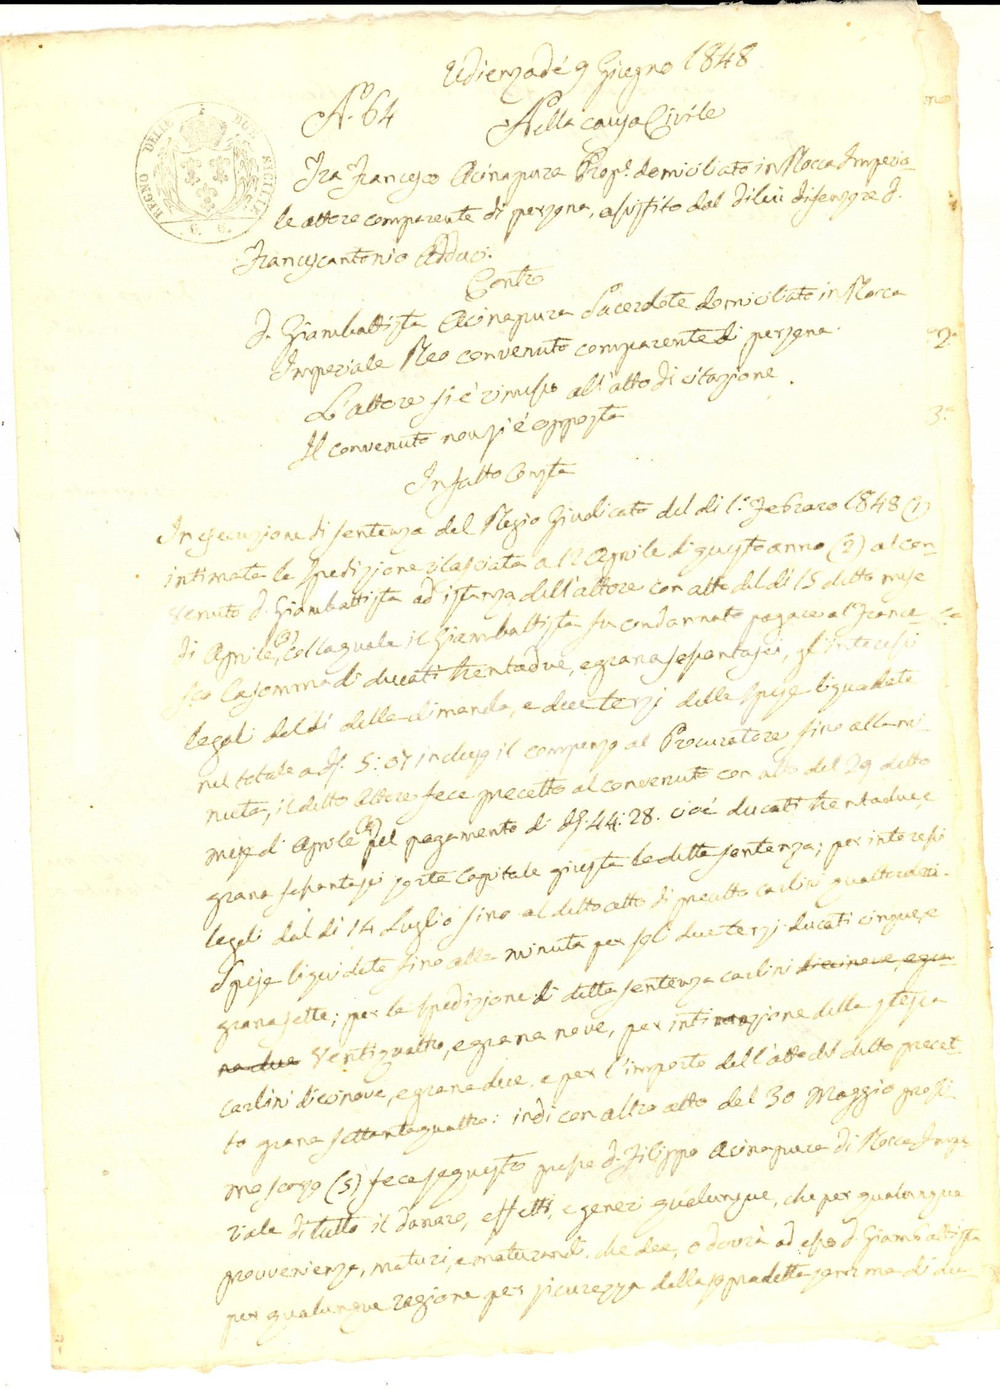 Udienza de' 9 Giugno 1848
N.° 64 Nella causa Civile
REGNO DELLE DUE SICILIE
G. 6.
Tra Francesco Acinapura Prop.° domiciliato in Rocca Imperia-
le attore comparente di persona, assistito dal di lui difensore D.
Francescantonio Adduci.
Contro
D. Giambattista Acinapura Sacerdote domiciliato in Rocca
Imperiale Reo convenuto comparente di persona.
L'attore si è rimesso all'atto di citazione.
Il convenuto non si è opposto
In fatto Consta
In esecuzione di sentenza del Regio Giudicato del dì 1.° Febraro 1848 (1)
intimata le spedizione rilasciata a 12 Aprile di questo anno (2) al con-
venuto D. Giambattista ad istanza dell'attore con atto del dì 15 detto mese
di Aprile (3), colla quale il Giambattista fu condannato pagare al France-
sco la somma di ducati trentadue, e grana sessantasei, gl'interessi
legali dal dì della dimanda, e due terzi delle spese liquidate
nel totale a D. 5:07 incluso il compenso al Procuratore fino alla mi-
nuta, il detto Attore fece precetto al convenuto con atto del 29 detto
mese di Aprile (4) pel pagamento di D. 44:28. cioè ducati trentadue, e
grana sessantasei sorte Capitale giusta la detta sentenza; per interessi
legali dal dì 14 Luglio sino al detto atto di precetto carlini quattordici.
Spese liquidate fino alla minuta per soli due terzi ducati cinque, e
grana sette; per la spedizione di detta sentenza carlini diecinove, e gra-
na due ventiquattro, e grana nove, per intimazione della stessa
carlini diecinove, e grana due, e per l'importo dell'atto del detto precet-
to grana settantaquattro: indi con altro atto del 30 Maggio prossi-
mo scorso (5) fece sequestro presso D. Filippo Acinapura di Rocca Impe-
riale di tutto il danaro, effetti, e generi qualunque, che per qualunque
provvenienza, maturi, e maturandi che dee, o dovrà ad esso D. Giambattista
per qualunque ragione per sicurezza della sopradetta somma di du-
2.°
3.°